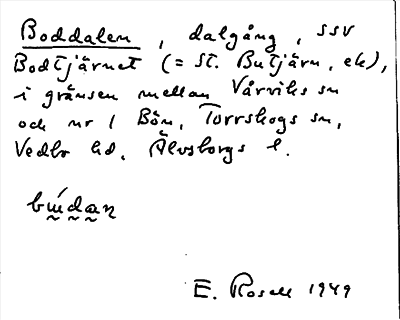 Boddalen, dalgång, SSV
Bodtjärnet (= St. Butjärn, ek),
i gränsen mellan Vårviks sn
och nr 1 Bön, Torrskogs sn,
Vedbo hd, Älvsborgs l.
E. Rosell 1949